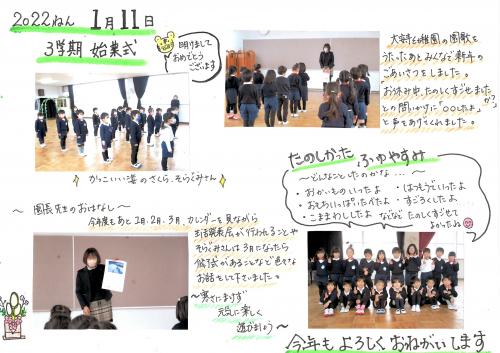 2022ねん 1月11日
3学期 始業式
明けまして
おめでとう
ございます
幼稚園の園歌を
うたったあと みんなで 新年の
ごあいさつをしました。
お休み中、たのしくすごせましたか?
との問いかけに「〇〇したよ」
と声をあげてくれました。
かっこいい姿の さくら、そらぐみさん
たのしかった ふゆやすみ
〜どんなことしたのかな…〜
・おかいものいったよ ・はつもうでいったよ
・おもちいっぱいたべたよ ・すごろくしたよ
・こままわししたよ などなど たのしくすごせて
よかったね
〜園長先生のおはなし〜
今年度もあと1月、2月、3月、カレンダーを見ながら
生活発表会が行われることや
そらぐみさんは3月になったら
修了式があることなど色々な
お話をして下さいました。
〜寒さにまけず
元気に楽しく
過ごしましょう〜
今年も よろしく おねがいします